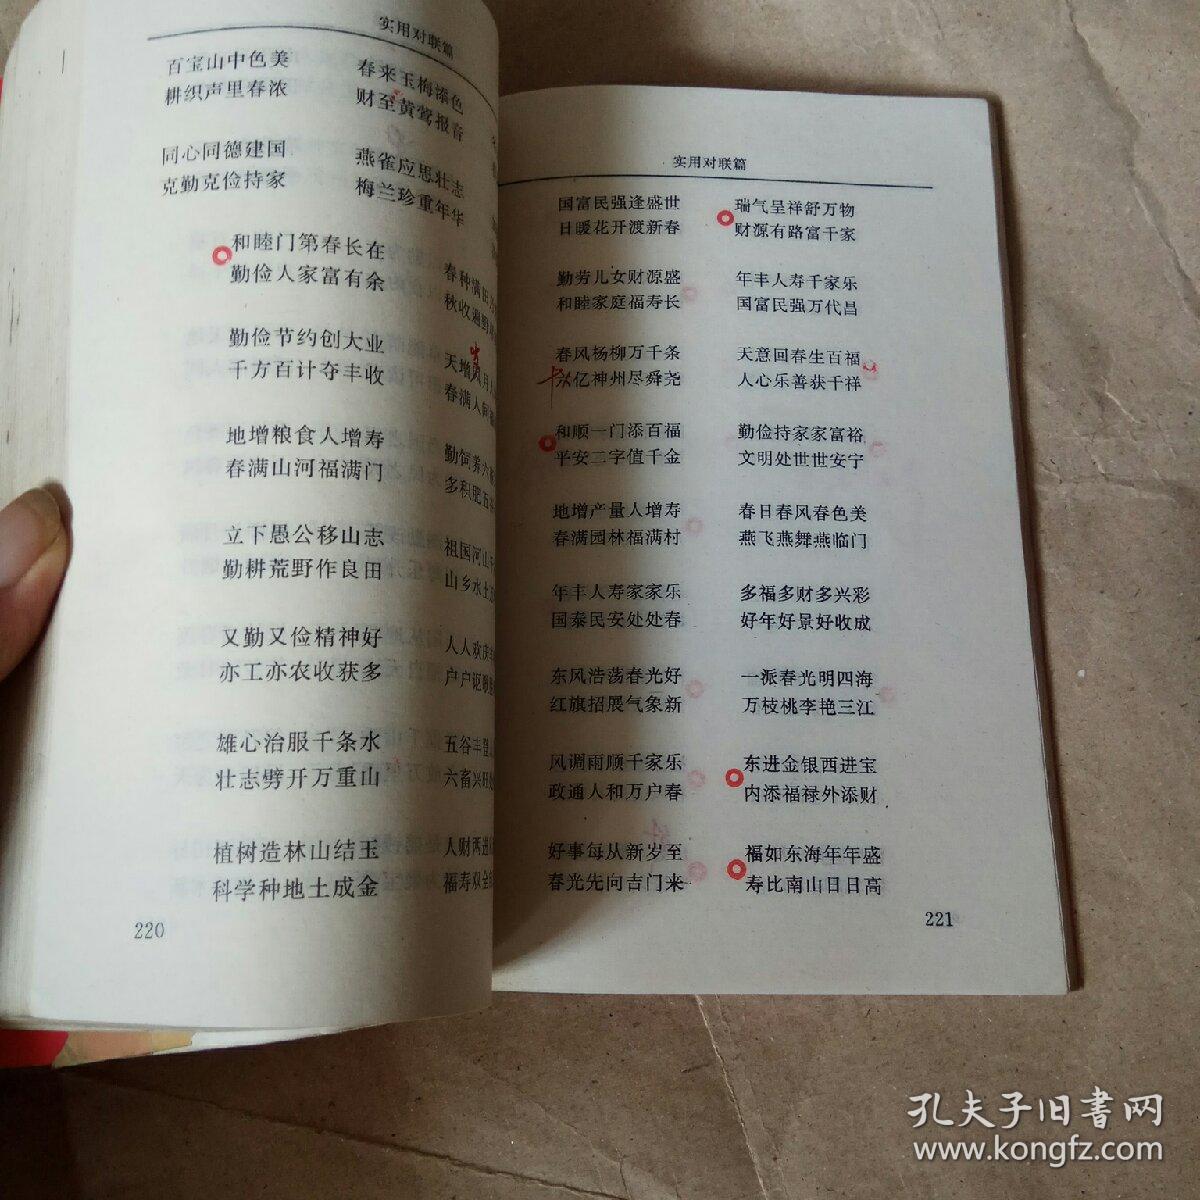 实用对联篇
百宝山中色美
耕织声里春浓
同心同德建国
克勤克俭持家
和睦门第春长在
勤俭人家富有余
勤俭节约创大业
千方百计夺丰收
地增粮食人增寿
春满山河福满门
立下愚公移山志
勤耕荒野作良田
又勤又俭精神好
亦工亦农收获多
雄心治服千条水
壮志劈开万重山
植树造林山结玉
科学种地土成金
春来玉梅添色
财至黄莺报音
燕雀应思壮志
梅兰珍重年华
春种满田
秋收遍野
天增岁月人
春满人间
勤饲养六
多积肥五谷
祖国河山
山乡水土
人人欢庆
户户讴歌
五谷丰登
六畜兴旺
人财两进
福寿双全
220
实用对联篇
国富民强逢盛世
日暖花开渡新春
勤劳儿女财源盛
和睦家庭福寿长
春风杨柳万千条
六亿神州尽舜尧
和顺一门添百福
平安二字值千金
地增产量人增寿
春满园林福满村
年丰人寿家家乐
国泰民安处处春
东风浩荡春光好
红旗招展气象新
风调雨顺千家乐
政通人和万户春
好事每从新岁至
春光先向吉门来
瑞气呈祥舒万物
财源有路富千家
年丰人寿千家乐
国富民强万代昌
天意回春生百福
人心乐善获千祥
勤俭持家家富裕
文明处世世安宁
春日春风春色美
燕飞燕舞燕临门
多福多财多兴彩
好年好景好收成
一派春光明四海
万枝桃李艳三江
东进金银西进宝
内添福禄外添财
福如东海年年盛
寿比南山日日高
221
孔夫子旧书网
www.kongfz.com